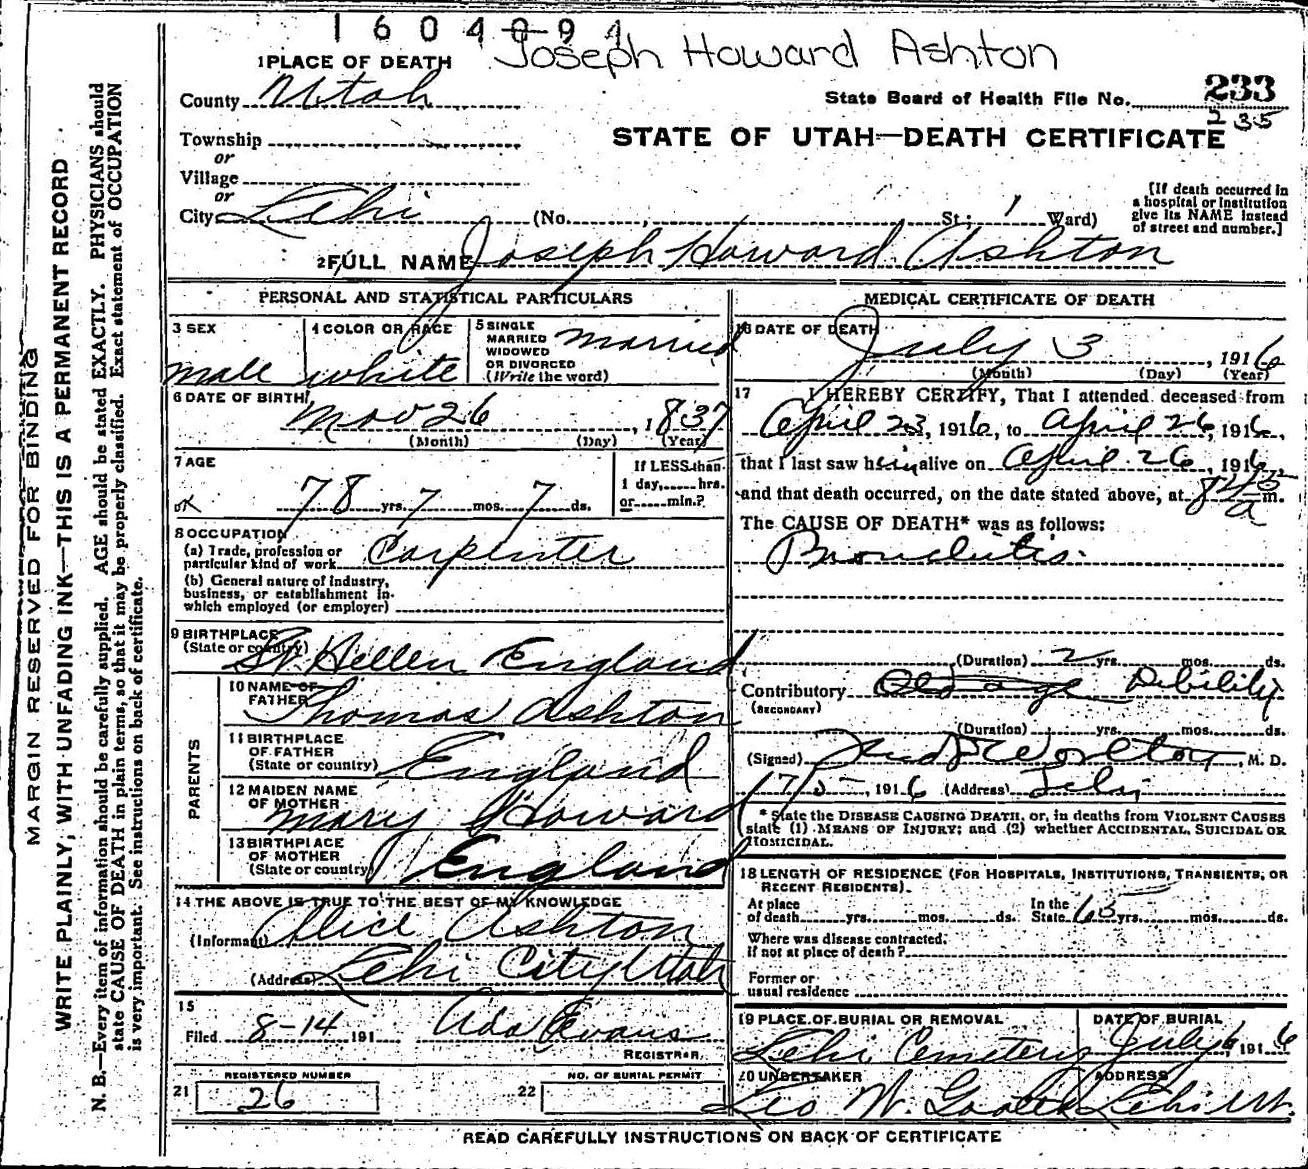 1604094
Joseph Howard Ashton
1 PLACE OF DEATH
County Utah
State Board of Health File No. 233
235
Township
or
STATE OF UTAH—DEATH CERTIFICATE
Village
or
City Lehi (No. , St; 1 Ward)
[If death occurred in a hospital or institution give its NAME instead of street and number.]
2 FULL NAME Joseph Howard Ashton
PERSONAL AND STATISTICAL PARTICULARS
3 SEX male
4 COLOR OR RACE white
5 SINGLE MARRIED WIDOWED OR DIVORCED (Write the word) married
6 DATE OF BIRTH Nov 26, 1837
(Month) (Day) (Year)
7 AGE
78 yrs. 7 mos. 7 ds.
If LESS than 1 day, hrs. or min.?
8 OCCUPATION
(a) Trade, profession or particular kind of work Carpenter
(b) General nature of industry, business, or establishment in which employed (or employer)
9 BIRTHPLACE
(State or country) St. Hellen England
PARENTS
10 NAME OF FATHER Thomas Ashton
11 BIRTHPLACE OF FATHER (State or country) England
12 MAIDEN NAME OF MOTHER Mary Howard
13 BIRTHPLACE OF MOTHER (State or country) England
14 THE ABOVE IS TRUE TO THE BEST OF MY KNOWLEDGE
(Informant) Alice Ashton
(Address) Lehi City Utah
15
Filed 8-14 191 Ada Evans
REGISTRAR
REGISTERED NUMBER
21 26
NO. OF BURIAL PERMIT
22
MEDICAL CERTIFICATE OF DEATH
16 DATE OF DEATH
July 3, 1916
(Month) (Day) (Year)
17 I HEREBY CERTIFY, That I attended deceased from
April 23, 1916, to April 26, 1916,
that I last saw him alive on April 26, 1916,
and that death occurred, on the date stated above, at 8 a m.
The CAUSE OF DEATH* was as follows:
Bronchitis.
(Duration) 2 yrs. mos. ds.
Contributory Old age Debility
(SECONDARY)
(Duration) yrs. mos. ds.
(Signed) Worlton, M. D.
7/5, 1916 (Address) Lehi
* State the DISEASE CAUSING DEATH, or, in deaths from VIOLENT CAUSES state (1) MEANS OF INJURY; and (2) whether ACCIDENTAL, SUICIDAL OR HOMICIDAL.
18 LENGTH OF RESIDENCE (FOR HOSPITALS, INSTITUTIONS, TRANSIENTS, OR RECENT RESIDENTS).
At place of death yrs. mos. ds. In the State 65 yrs. mos. ds.
Where was disease contracted, if not at place of death?
Former or usual residence
19 PLACE OF BURIAL OR REMOVAL
Lehi Cemetery
DATE OF BURIAL
July 6, 1916
20 UNDERTAKER
Leo W. Goates
ADDRESS
Lehi Ut.
READ CAREFULLY INSTRUCTIONS ON BACK OF CERTIFICATE
MARGIN RESERVED FOR BINDING
WRITE PLAINLY, WITH UNFADING INK—THIS IS A PERMANENT RECORD
N. B.—Every item of information should be carefully supplied. AGE should be stated EXACTLY. PHYSICIANS should
state CAUSE OF DEATH in plain terms, so that it may be properly classified. Exact statement of OCCUPATION
is very important. See instructions on back of certificate.